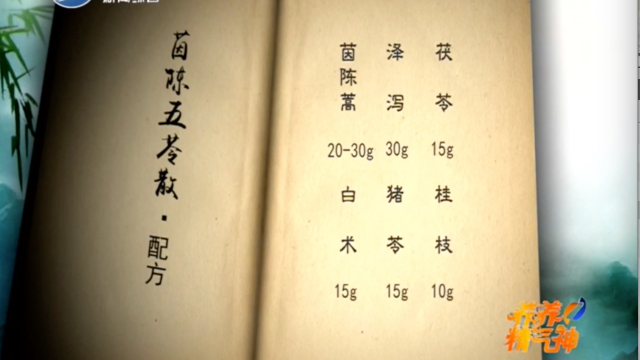 茵陈五苓散·配方
茯苓
15g
泽泻
30g
茵陈蒿
20-30g
桂枝
10g
猪苓
15g
白术
15g
精气神